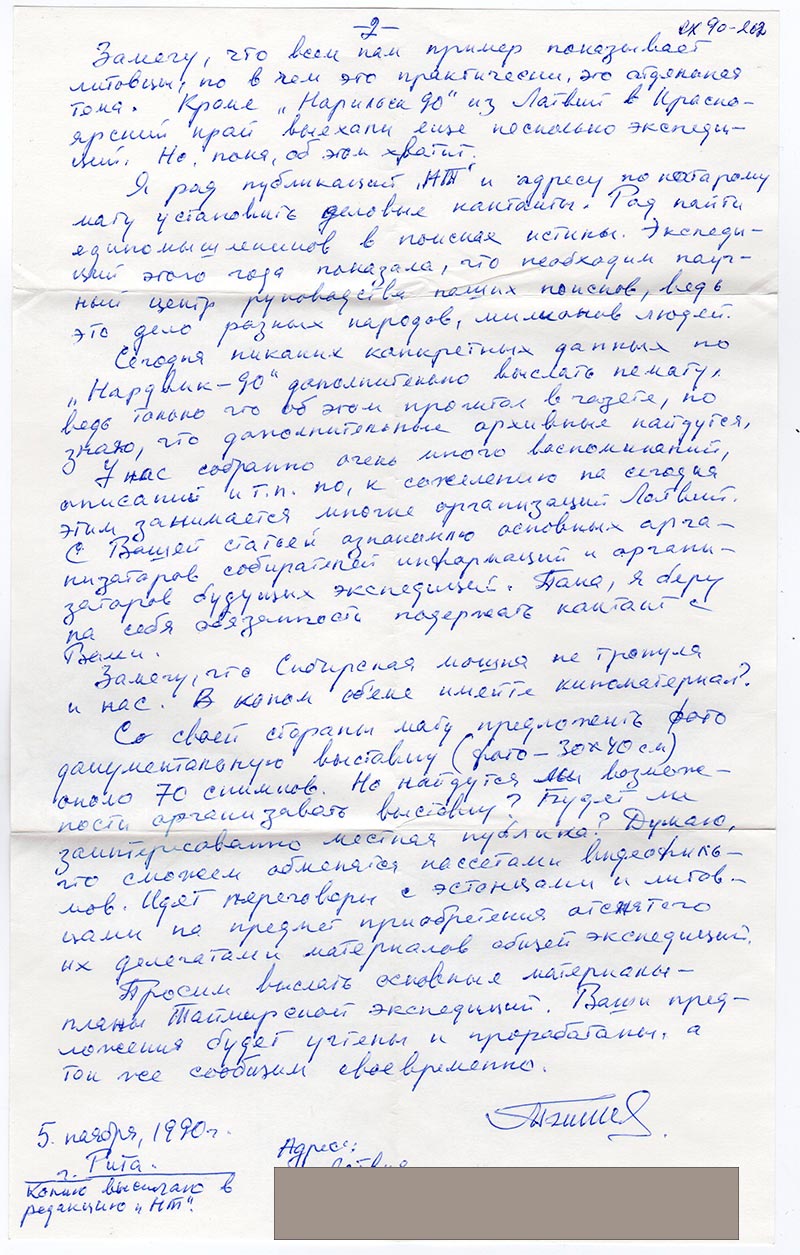 -2-
вх 90-262
Замечу, что всем нам пример показывает
литовцы, но в чем это практически, это отдельная
тема. Кроме „Норильск 90" из Латвий в Красно-
ярский край выехали еще несколько экспеди-
ций. Но, пока, об этом хватит.
Я рад публикаций „НТ" и адресу по которому
магу установить деловые кантакты. Рад найти
единомышлеников в поисках истины. Экспеди-
ций этого года показала, что необходим науч-
ный центр руководства наших поисков, ведь
это дело разных народов, милионов людей.
Сегодня никаких конкретных данных по
„Нардвик-90" дополнительно выслать немагу,
ведь только что об этом прочитал в газете, но
знаю, что дополнительные архивные найдутся.
У нас собранно очень много воспоминаний,
описаний и т.п. но, к сожелению на сегодня
этим занимается многие организаций Латвий.
С Вашей статьей азнакомлю основных арга-
низаторов собирателей информаций и органи-
заторов будущих экспедиций. Пока, я беру
на себя обязанности подержать кантакт с
Вами.
Замечу, что Сибирская мошка не тронула
и нас. В каком обеме имейте киноматериал?
Со своей стораны магу предложить фото
дакументальную выставку (фото – 30х40 см)
около 70 снимков. Но найдутся ли возмож-
ности организавать выставку? Будет ли
заинтересованно местная публика? Думаю,
что сможем обменятся кассетами видеофиль-
мов. Идят переговоры с эстонцами и литов-
цами на предмет приобретения отснятого
их делегатами материалов общей экспедиций.
Просим выслать основные материалы-
планы Таймырской экспедиций. Ваши пред-
ложения будет учтены и прорабатаны, а
так же сообщим своевременно.
5. ноября, 1990 г.
г. Рига.
Копию высылаю в
редакцию „НТ".
Адрес:
Латвия